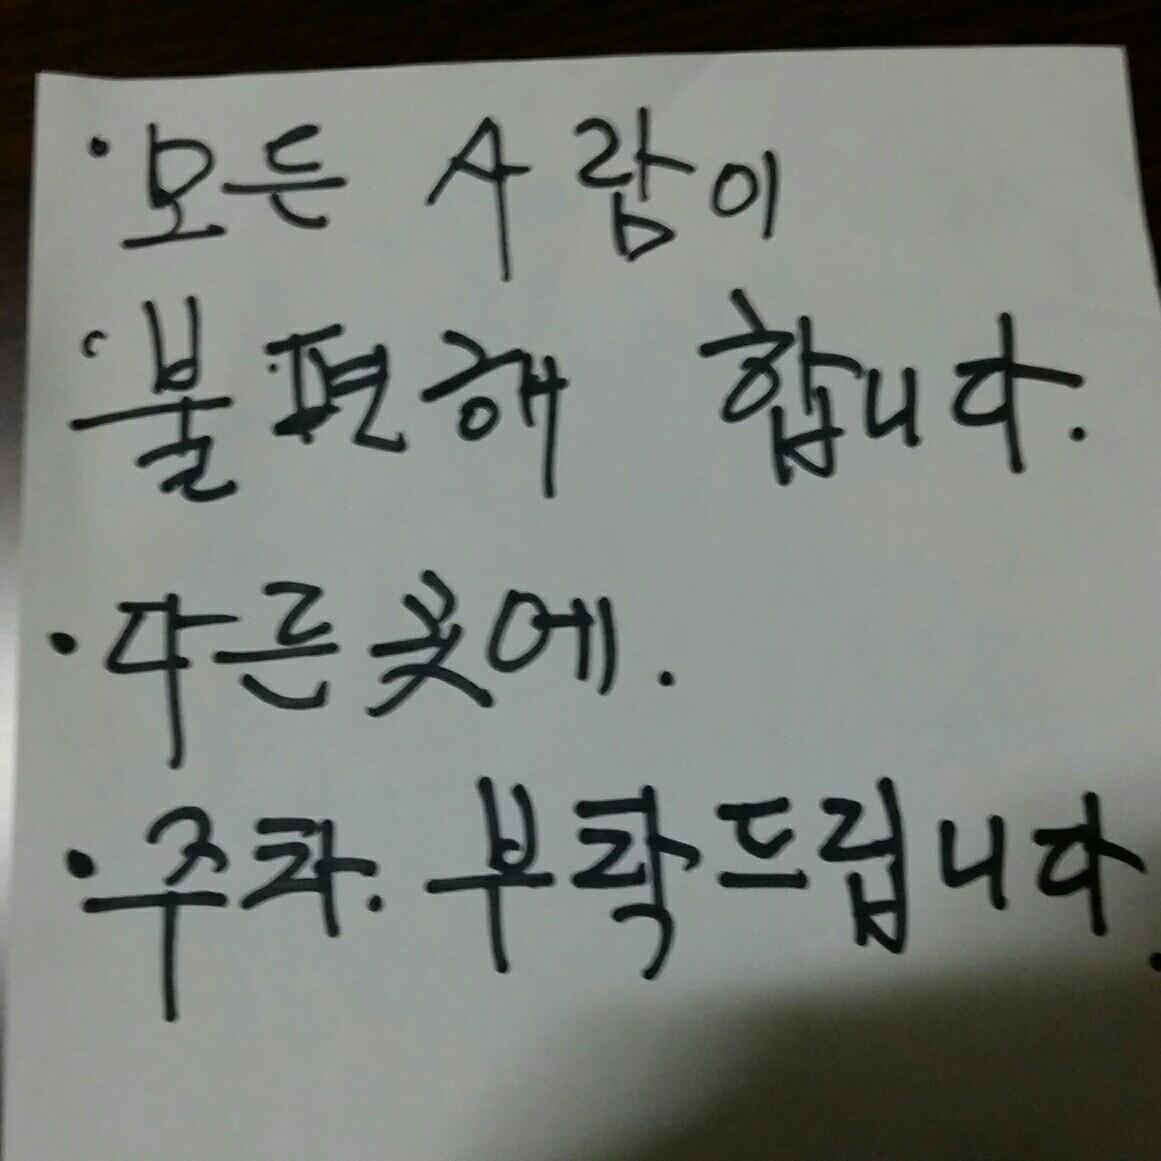 ·모든 사람이
·불편해 합니다.
·다른곳에.
·주차. 부탁드립니다.